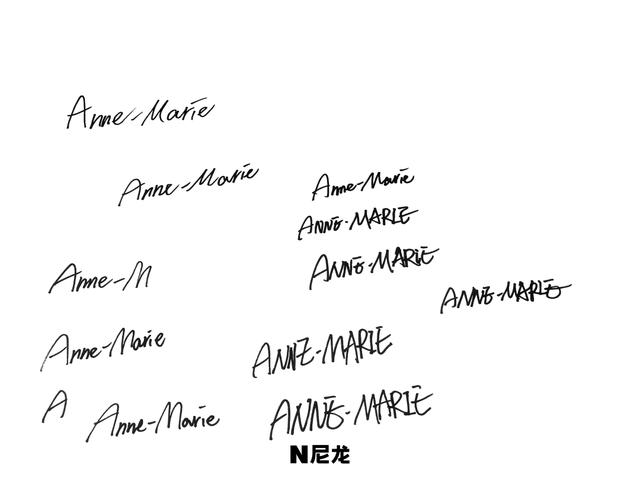 Anne-Marie
Anne-Marie
Anne-Marie
ANNE-MARIE
Anne-M
ANNE-MARIE
ANNE-MARIE
Anne-Marie
ANNE-MARIE
A
Anne-Marie
ANNE-MARIE
N尼龙